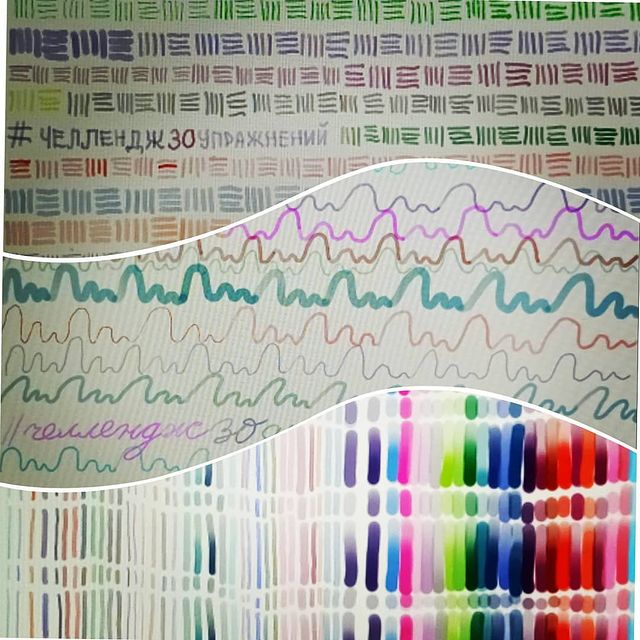 # ЧЕЛЛЕНДЖ 30 УПРАЖНЕНИЙ
#челлендж 30